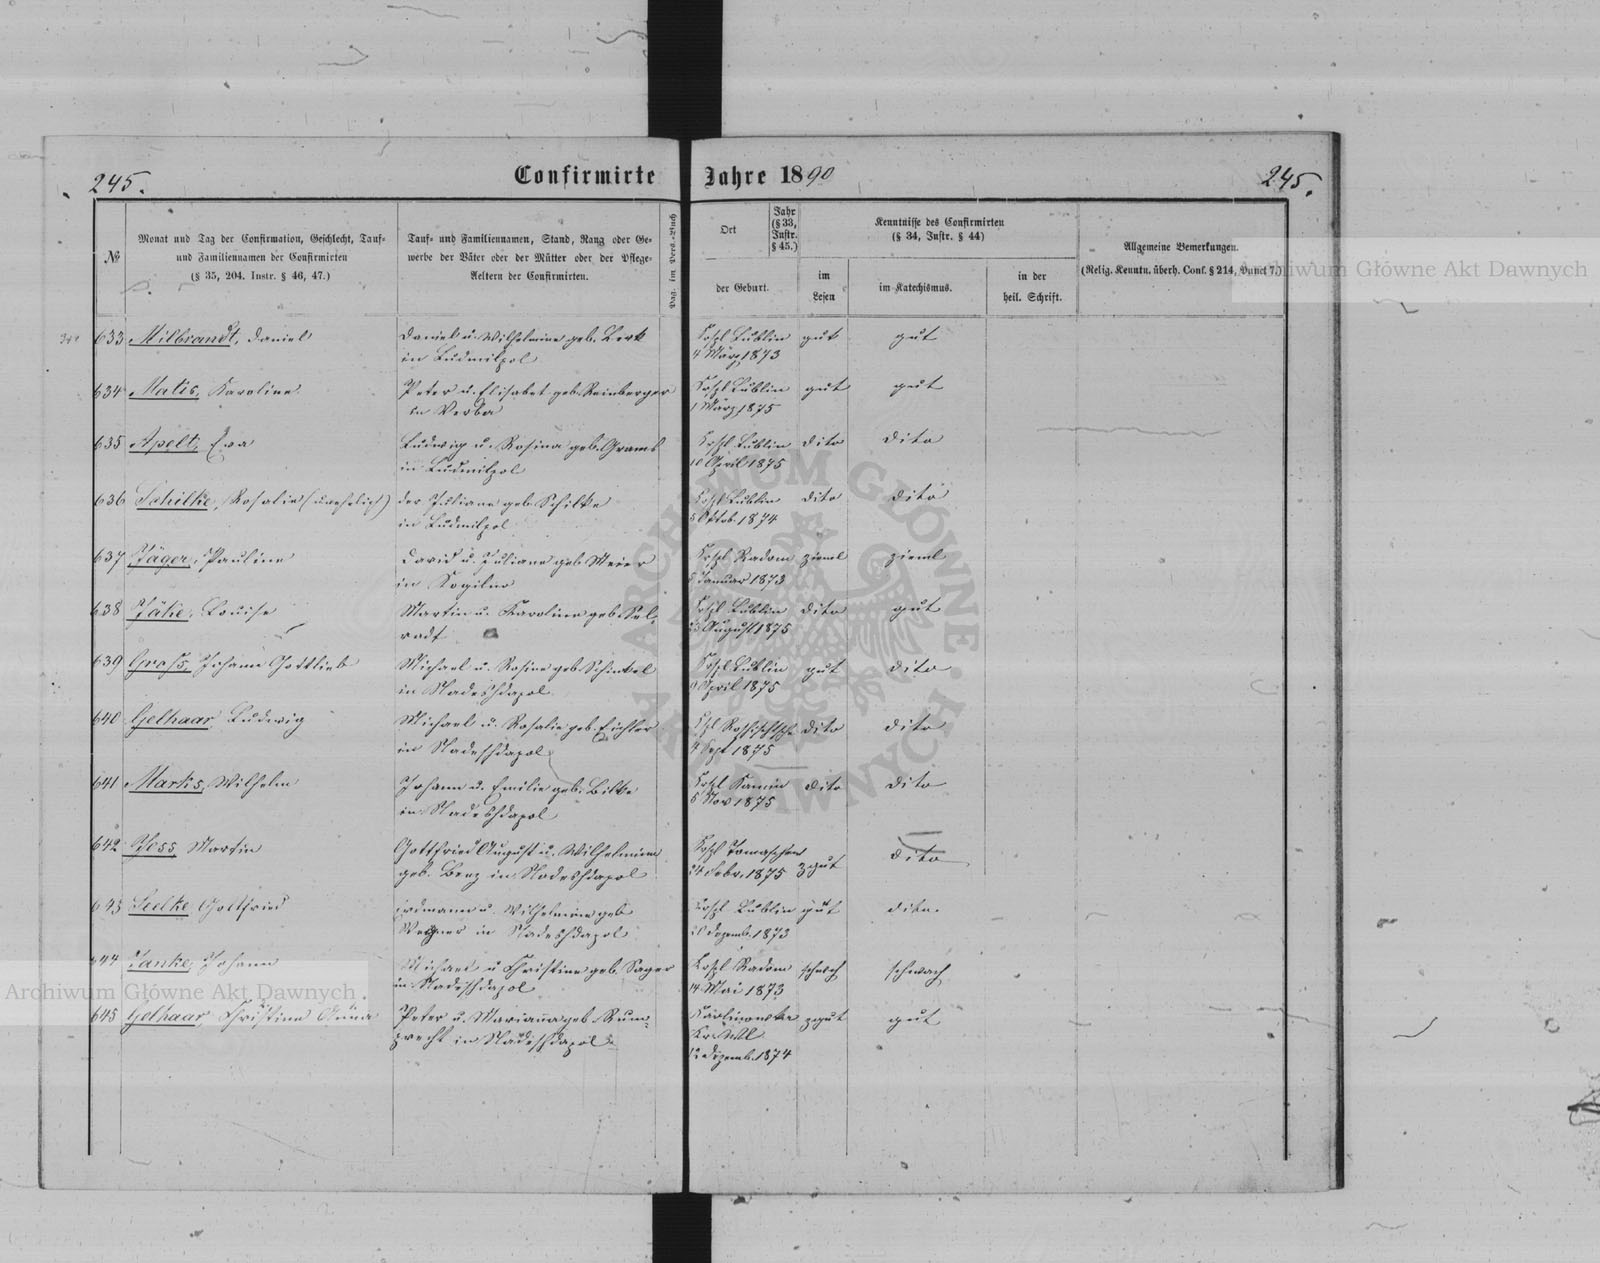 245.
Confirmirte Jahre 1890
245.
№
Monat und Tag der Confirmation, Geschlecht, Tauf-
und Familiennamen der Confirmirten
(§ 35, 204. Instr. § 46, 47.)
Tauf- und Familiennamen, Stand, Rang oder Ge-
werbe der Väter oder der Mütter oder der Pflege-
Aeltern der Confirmirten.
Pag. im Pers.-Buch
Ort
Jahr
(§ 33,
Instr.
§ 45.)
der Geburt.
Kenntnisse des Confirmirten
(§ 34, Instr. § 44)
im
Lesen
im Katechismus.
in der
heil. Schrift.
Allgemeine Bemerkungen.
(Relig. Kenntn. überh. Conf. § 214, Punct 7.)
Archiwum Główne Akt Dawnych
633 Milbrandt, Daniel
Daniel u. Wilhelmine geb. Berk
in Ludmilpol
Kspl Lublin
4 März 1873
gut
gut
634 Matis, Karoline
Peter u. Elisabet geb. Reinberger
in Verba
Kspl Lublin
1 März 1875
gut
gut
635 Apelt, Ewa
Ludwig u. Rosina geb. Grams
in Ludmilpol
Kspl Lublin
10 April 1875
dito
dito
636 Schilke, Rosalie (unehelich)
der Juliane geb. Schilke
in Ludmilpol
Kspl Lublin
5 Oktob. 1874
dito
dito
637 Jäger, Pauline
David u. Juliane geb. Meier
in
Kspl Radom
Januar 1873
zieml
zieml
638 Jähe, Louise
Martin u. Karoline geb.
Kspl Lublin
August 1875
dito
gut
639 Gross, Johann Gottlieb
Michael u. Rosine geb. Schinkel
in Nadeshdapol
Kspl Lublin
April 1875
gut
dito
640 Gelhaar, Ludwig
Michael u. Rosalie geb. Eichler
in Nadeshdapol
Kspl
4 Sept 1875
dito
dito
641 Marks, Wilhelm
Johann u. Emilie geb. Bilke
in Nadeshdapol
Kspl Kamin
Nov 1875
dito
dito
642 Jess, Martin
Gottfried August u. Wilhelmine
geb. Benz in Nadeshdapol
Kspl
24 Febr. 1875
zgut
dito
643 Seelke, Gottfried
Erdmann u. Wilhelmine geb
Wegner in Nadeshdapol
Kspl Lublin
20 Dezemb. 1873
gut
dito.
644 Janke, Johann
Michael u Christine geb. Sager
in Nadeshdapol
Kspl Radom
14 Mai 1873
schwach
schwach
Archiwum Główne Akt Dawnych
645 Gelhaar, Christine Anna
Peter u. Marianna geb. Rum-
precht in Nadeshdapol
12 Dezemb. 1874
zgut
gut
ARCHIWUM GŁÓWNE AKT DAWNYCH